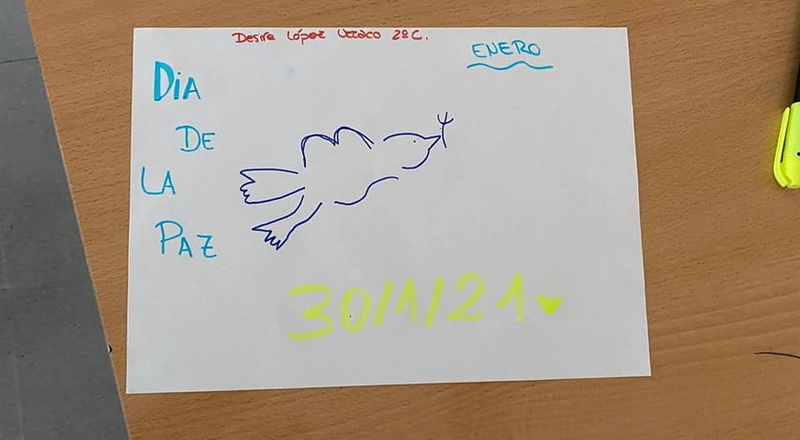 Desire López 2º C.
ENERO
DIA
DE
LA
PAZ
30/1/21